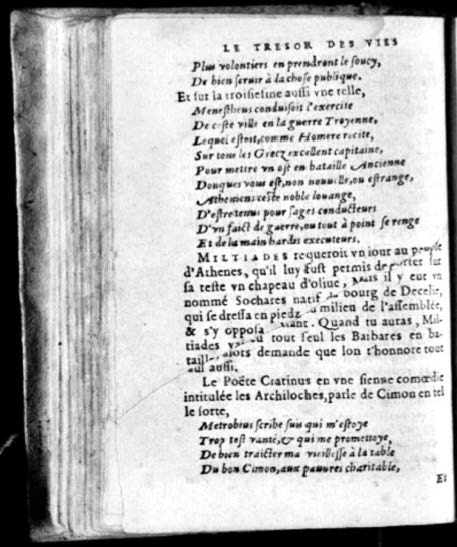 LE TRESOR DES VIES
Plus volontiers en prendront le soucy,
De bien seruir à la chose publique.
Et fut la troisiesme aussi vne telle,
Menestheus conduisoit l'exercite
De ceste ville en la guerre Troyenne,
Lequel estoit, comme Homere recite,
Sur tous les Grecz excellent capitaine,
Pour mettre vn ost en bataille Ancienne
Donques vous est, non nouuelle, ou estrange,
Atheniens ceste noble louange,
D'estre tenus pour sages conducteurs
D'vn faict de guerre, ou tout à point se renge
Et de la main hardis executeurs.
MILTIADES requeroit vn iour au peuple
d'Athenes, qu'il luy fust permis de porter sur
sa teste vn chapeau d'oliue, mais il y eut vn
nommé Sochares natif du bourg de Decelie,
qui se dressa en piedz au milieu de l'assemblée,
& s'y opposa disant. Quand tu auras, Mil-
tiades tout seul les Barbares en ba-
taille, alors demande que lon t'honnore tout
seul aussi.
Le Poëte Cratinus en vne sienne comœdie
intitulée les Archiloches, parle de Cimon en tel
le sorte,
Metrobius scribe suis qui m'estoye
Trop tost vanté, & qui me promettoye,
De bien traicter ma vieillesse à la table
Du bon Cimon, aux pauures charitable,
Et